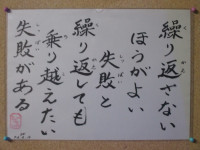 繰り返さない
ほうがよい
失敗と
繰り返しても
乗り越えたい
失敗がある